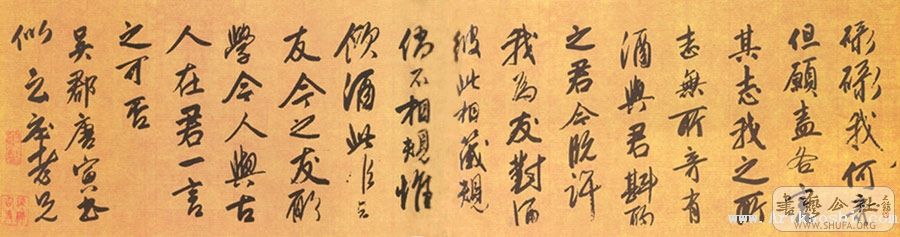 碌碌我何奇
但願盍各言
其志我之所
志無所奇有
酒與君斟酌
之君今既許
我為友對酒
彼此相箴規
倘不相規惟
飲酒此
友今之友願
學今人與古
人在君一言
之可否
吳郡唐寅書
似老兄
書藝公社
WWW.SHUFA.ORG